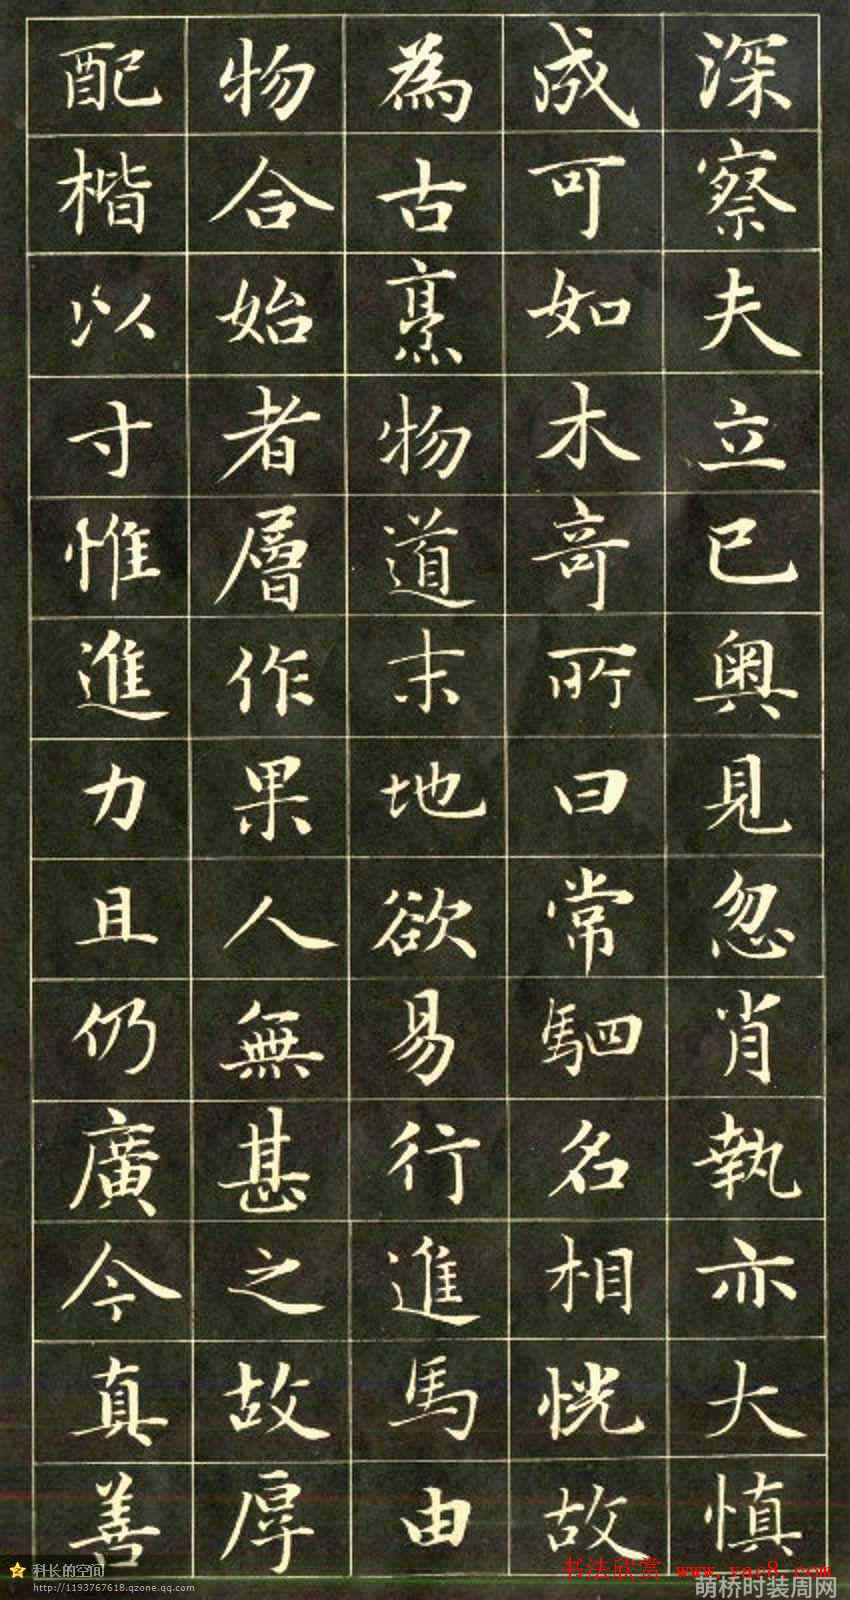 深察夫立已奥見忽肖執亦大慎
成可如木奇所曰常駟名相恍故
為古烹物道末地欲易行進馬由
物合始者層作果人無甚之故厚
配楷以寸惟進力且仍廣今真善
科长的空间
http://1193767618.qzone.qq.com
书法欣赏 www.yac8.com
萌桥时装周网